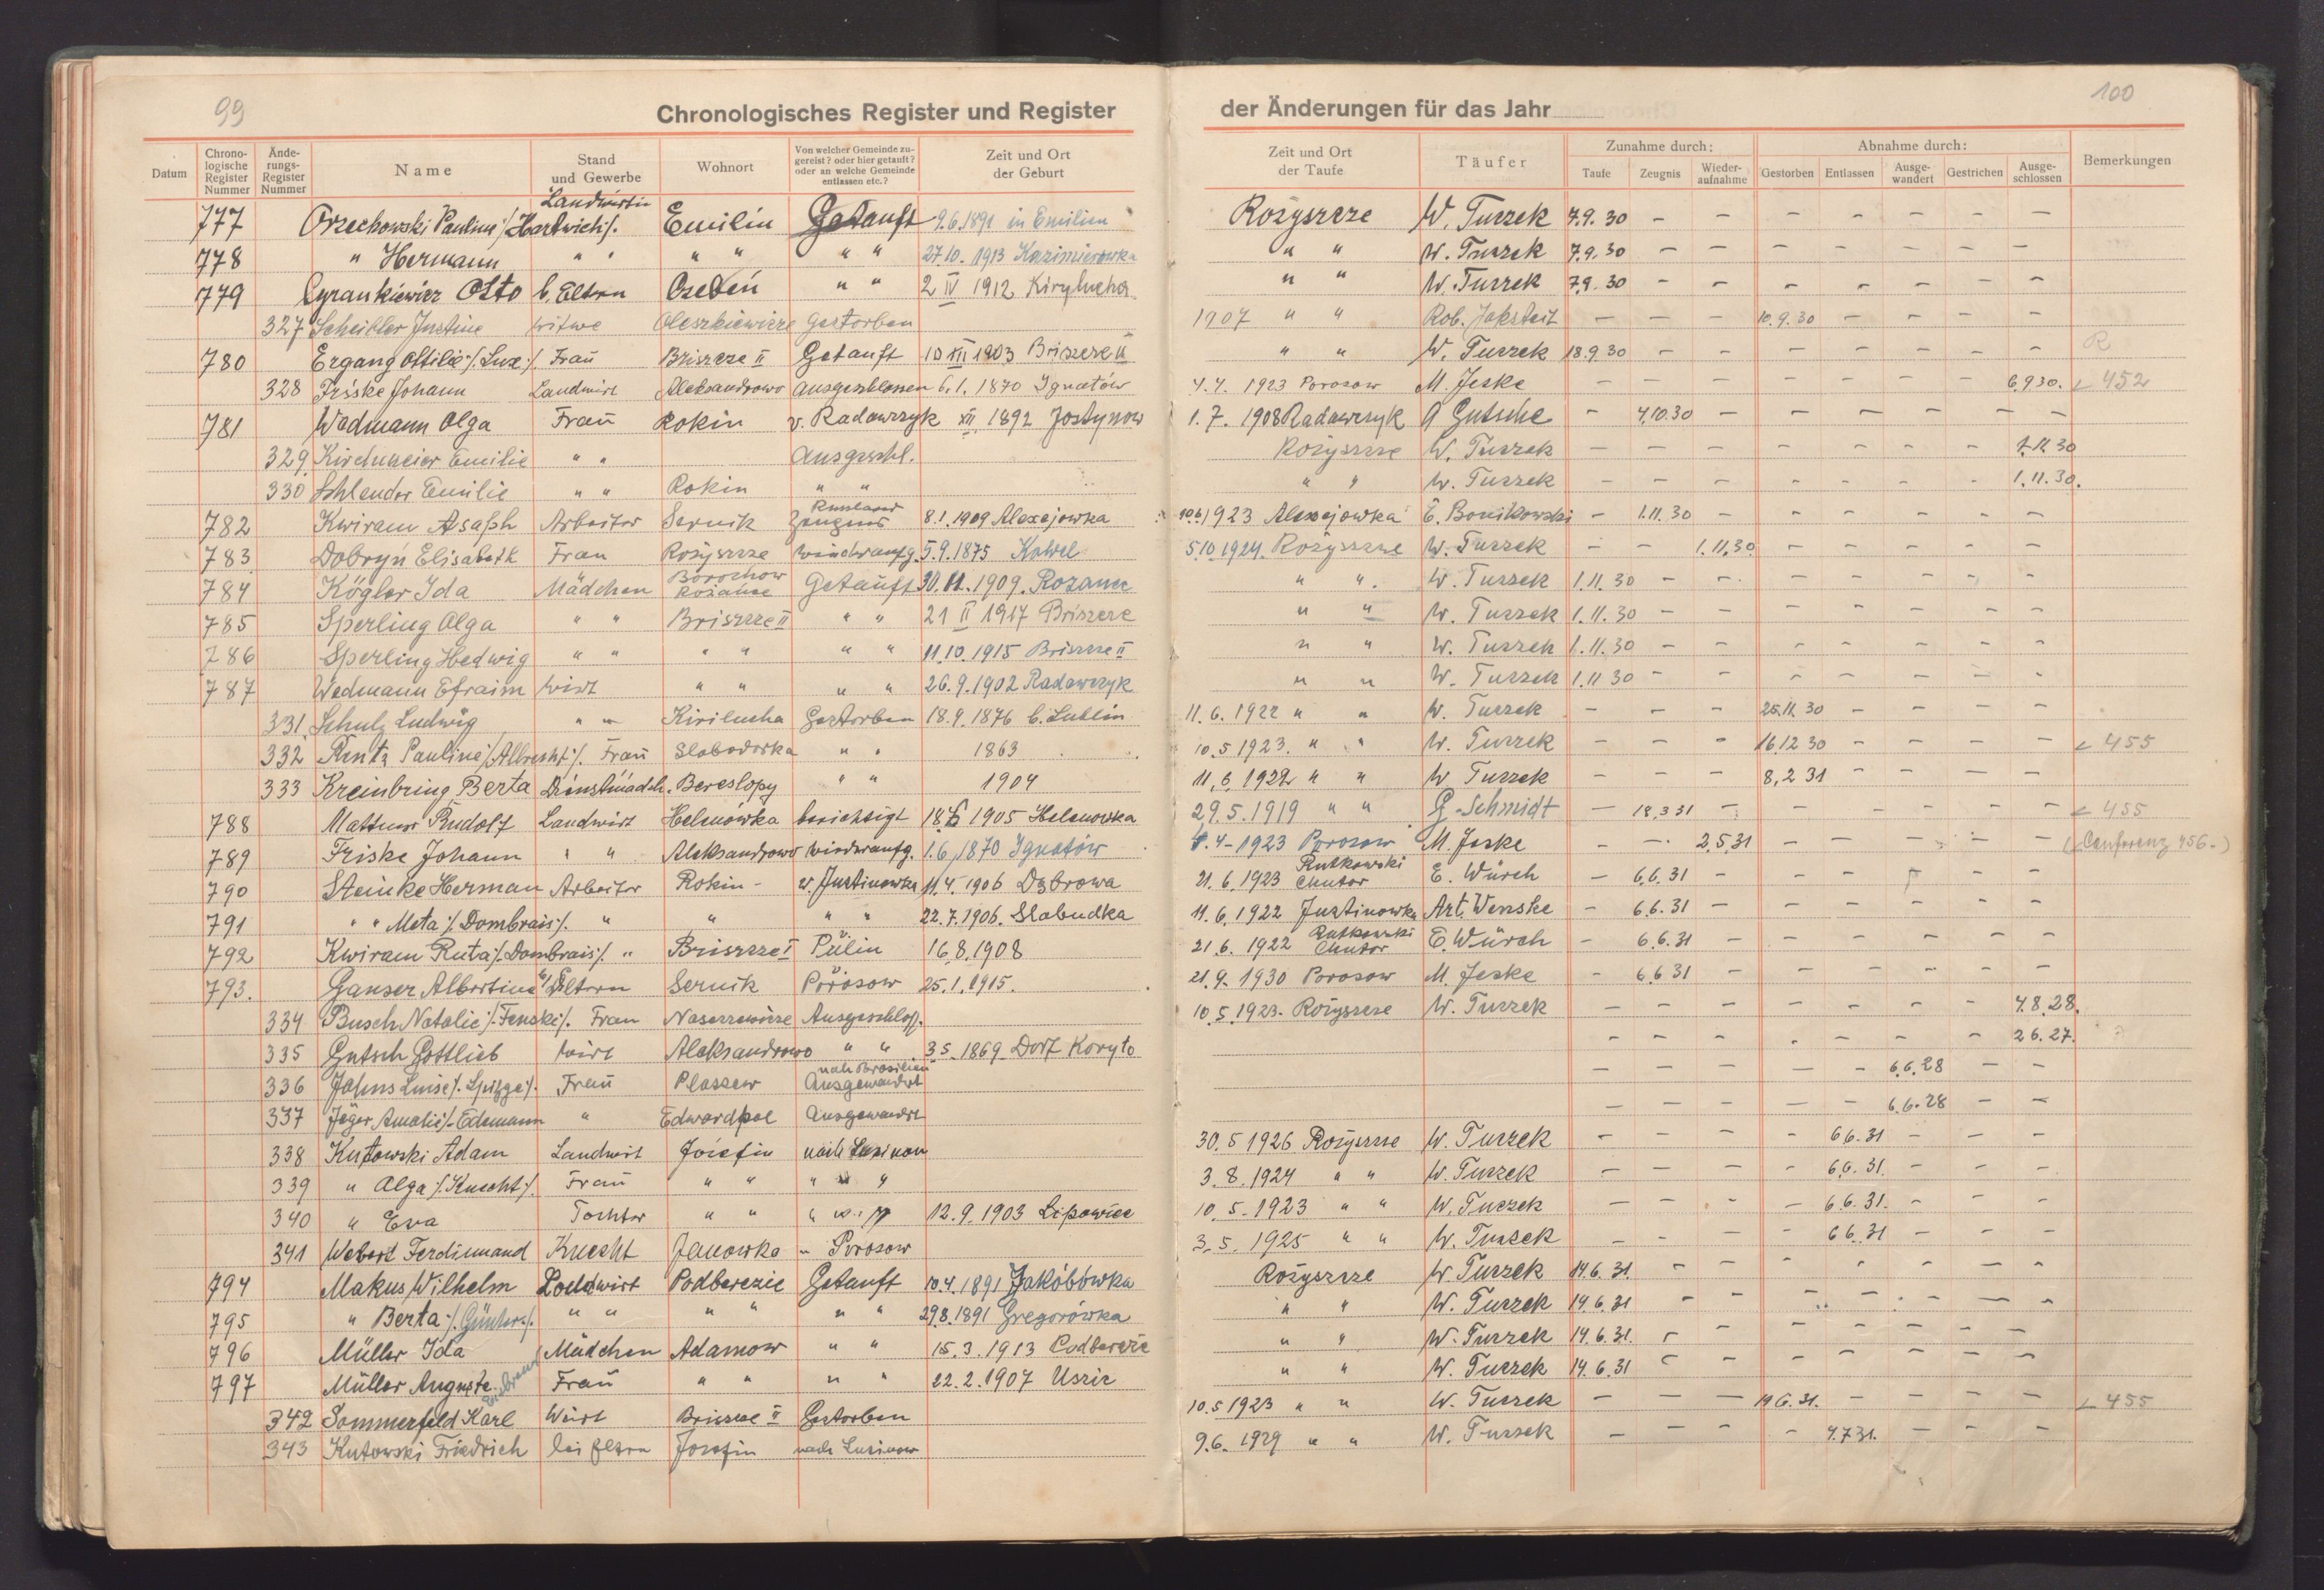 99
100
Chronologisches Register und Register der Änderungen für das Jahr
Datum Chrono-logische Register Nummer Ände-rungs-Register Nummer Name Stand und Gewerbe Wohnort Von welcher Gemeinde zu-gereist? oder hier getauft? oder an welche Gemeinde entlassen etc.? Zeit und Ort der Geburt Zeit und Ort der Taufe Täufer Zunahme durch: Taufe Zeugnis Wieder-aufnahme Abnahme durch: Gestorben Entlassen Ausge-wandert Gestrichen Ausge-schlossen Bemerkungen
777 Orzechowski Pauline /:Hartwich:/. Landwirtin Emilin Getauft 9.6.1891 in Emilin Rożyszcze W. Tuczek 7.9.30 – – – – – – –
778 " Hermann " " " " " " 27.10.1913 Kazimierowka " " W. Tuczek 7.9.30 – – – – – – –
779 Cyrankiewicz Otto b. Eltern Ozebin " " 2 IV 1912 Kirylucha " " W. Tuczek 7.9.30 – – – – – – –
327 Scheibler Justine Witwe Oleszkiewicze Gestorben 1907 " " Rob. Jaksteit – – – 10.9.30 – – – –
780 Ergang Ottilie /:Lux:/. Frau Briszcze II Getauft 10 XII 1903 Briszcze II " " W. Tuczek 18.9.30 – – – – – – – R
328 Friske Johann Landwirt Aleksandrowo Ausgeschlossen 6.1.1870 Ignatów 4.4.1923 Porosow M. Jeske – – – – – – – 6.9.30. ∠ 452
781 Wedmann Olga Frau Rokin v. Radawczyk XII 1892 Jostynow 1.7.1908 Radawczyk A Gutsche – 4.10.30 – – – – – –
329. Kirchmeier Emilie " " Ausgeschl. Rożyszcze W. Tuczek – – – – – – – 1.11.30
330 Schlender Emilie " " Rokin " " " " W. Tuczek – – – – – – – 1.11.30.
782 Kwiram Asaph Arbeiter Sernik Russland Zeugnis 8.1.1909 Alexejowka 10.6.1923 Alexejowka E. Bonikowski – 1.11.30 – – – – – –
783. Dobryń Elisabeth Frau Rożyszcze Wiederaufg. 5.9.1875 Kowel 5.10.1924. Rożyszcze W. Tuczek – – 1.11.30 – – – – –
784 Kögler Ida Mädchen Borochow Rożanie Getauft 30.11.1909. Rozanie " " W. Tuczek 1.11.30 – – – – – – –
785 Sperling Olga " " Briszcze II " " 21 II 1917 Briszcze " " W. Tuczek 1.11.30 – – – – – – –
786 Sperling Hedwig " " " " " " 11.10.1915 Briszcze II " " W. Tuczek 1.11.30 – – – – – – –
787 Wedmann Efraim Wirt " " " " 26.9.1902 Radawczyk " " W. Tuczek 1.11.30 – – – – – – –
331. Schulz Ludwig " " Kirilucha Gestorben 18.9.1876 b. Lublin 11.6.1922 " " W. Tuczek – – – 25.11.30 – – – –
332 Rentz Pauline /:Albrecht:/. Frau Slobodorka " " 1863 10.5.1923. " " W. Tuczek – – – 16.12.30 – – – – ∠ 455
333 Kreinbring Berta Dienstmädch. Bereslopy " " 1904 11.6.1922 " " W Tuczek – – – 8.2.31 – – – –
788 Mattner Rudolf Landwirt Helenówka berichtigt 18.6 1905 Helenowka 29.5.1919 " " G. Schmidt – 18.3.31 – – – – – – ∠ 455
789 Friske Johann " " Aleksandrowo Wiederaufg. 1.6.1870 Ignatów 4.4-1923 Porosow M. Jeske – – 2.5.31 – – – – – (Conferenz 456.)
790 Steinke Herman Arbeiter Rokin - v. Justinowka 11.4.1906 Dąbrowa 21.6.1923 Rutkowski Chutor E. Würch – 6.6.31 – – – – – –
791 " " Meta /:Dombrais:/. " " " " 22.7.1906. Slabudka 11.6.1922 Justinowka Art. Wenske – 6.6.31 – – – – – –
792 Kwiram Ruta /:Dombrais:/. " Briszcze I Pülin 16.8.1908 21.6.1922 Rutkowski Chutor E. Würch – 6.6.31 – – – – – –
793. Ganser Albertine b/ Eltern Sernik Porosow 25.1.1915. 21.9.1930 Porosow M. Jeske – 6.6.31 – – – – – –
334 Busch Natalie /:Fenski:/. Frau Ausgeschloss. 10.5.1923. Rożyszcze W. Tuczek – – – – – – – 4.8.28.
335 Gutsch Gottlieb Wirt Aleksandrowo " " 3.5.1869 Dorf Koryto – – – – – – – 2 6.27.
336 Johns Luise /:Spizge:/. Frau Plaszew nach Brasilien Ausgewandert – – – – – 6.6.28 – –
337 Jäger Amalie /:Edemann " Edwardpol Ausgewandert – – – – – 6.6.28 – –
338 Kutowski Adam Landwirt Józefin nach Lusinow 30.5 1926 Rożyszcze W. Tuczek – – – – 6.6.31 – – –
339 " Olga /:Knecht:/. Frau " " " " " 3.8.1924 " " W. Tuczek – – – – 6.6.31. – – –
340 " Eva Tochter " " " " " 12.9.1903 Lipowiec 10.5.1923 " " W. Tuczek – – – – 6.6.31. – – –
341 Webert Ferdinand Knecht Janowka " Porosow 3.5.1925 " " W. Tuczek – – – – 6.6.31 – – –
794 Makus Wilhelm Landwirt Podberezie Getauft 10.4.1891 Jakóbówka Rożyszcze W Tuczek 14.6.31. – – – – – – –
795 " Berta /:Günter:/. " " " " " " 29.8.1891 Gregorówka " " W. Tuczek 14.6.31 – – – – – – –
796 Müller Ida Mädchen Adamow " " 15.3.1913 Podbereże " " W. Tuczek 14.6.31. – – – – – – –
797 Müller Auguste Frau " " " " 22.2.1907 Uszir " " W. Tuczek 14.6.31 – – – – – – –
342 Sommerfeld Karl Wirt Briszcze II Gestorben 10.5 1923 " " W. Tuczek – – – 19.6.31. – – – – ∠ 455
343 Kutowski Friedrich bei Eltern Josefin nach Lusinow 9.6.1929 " " W. Tuczek – – – – 4.7.31. – – –